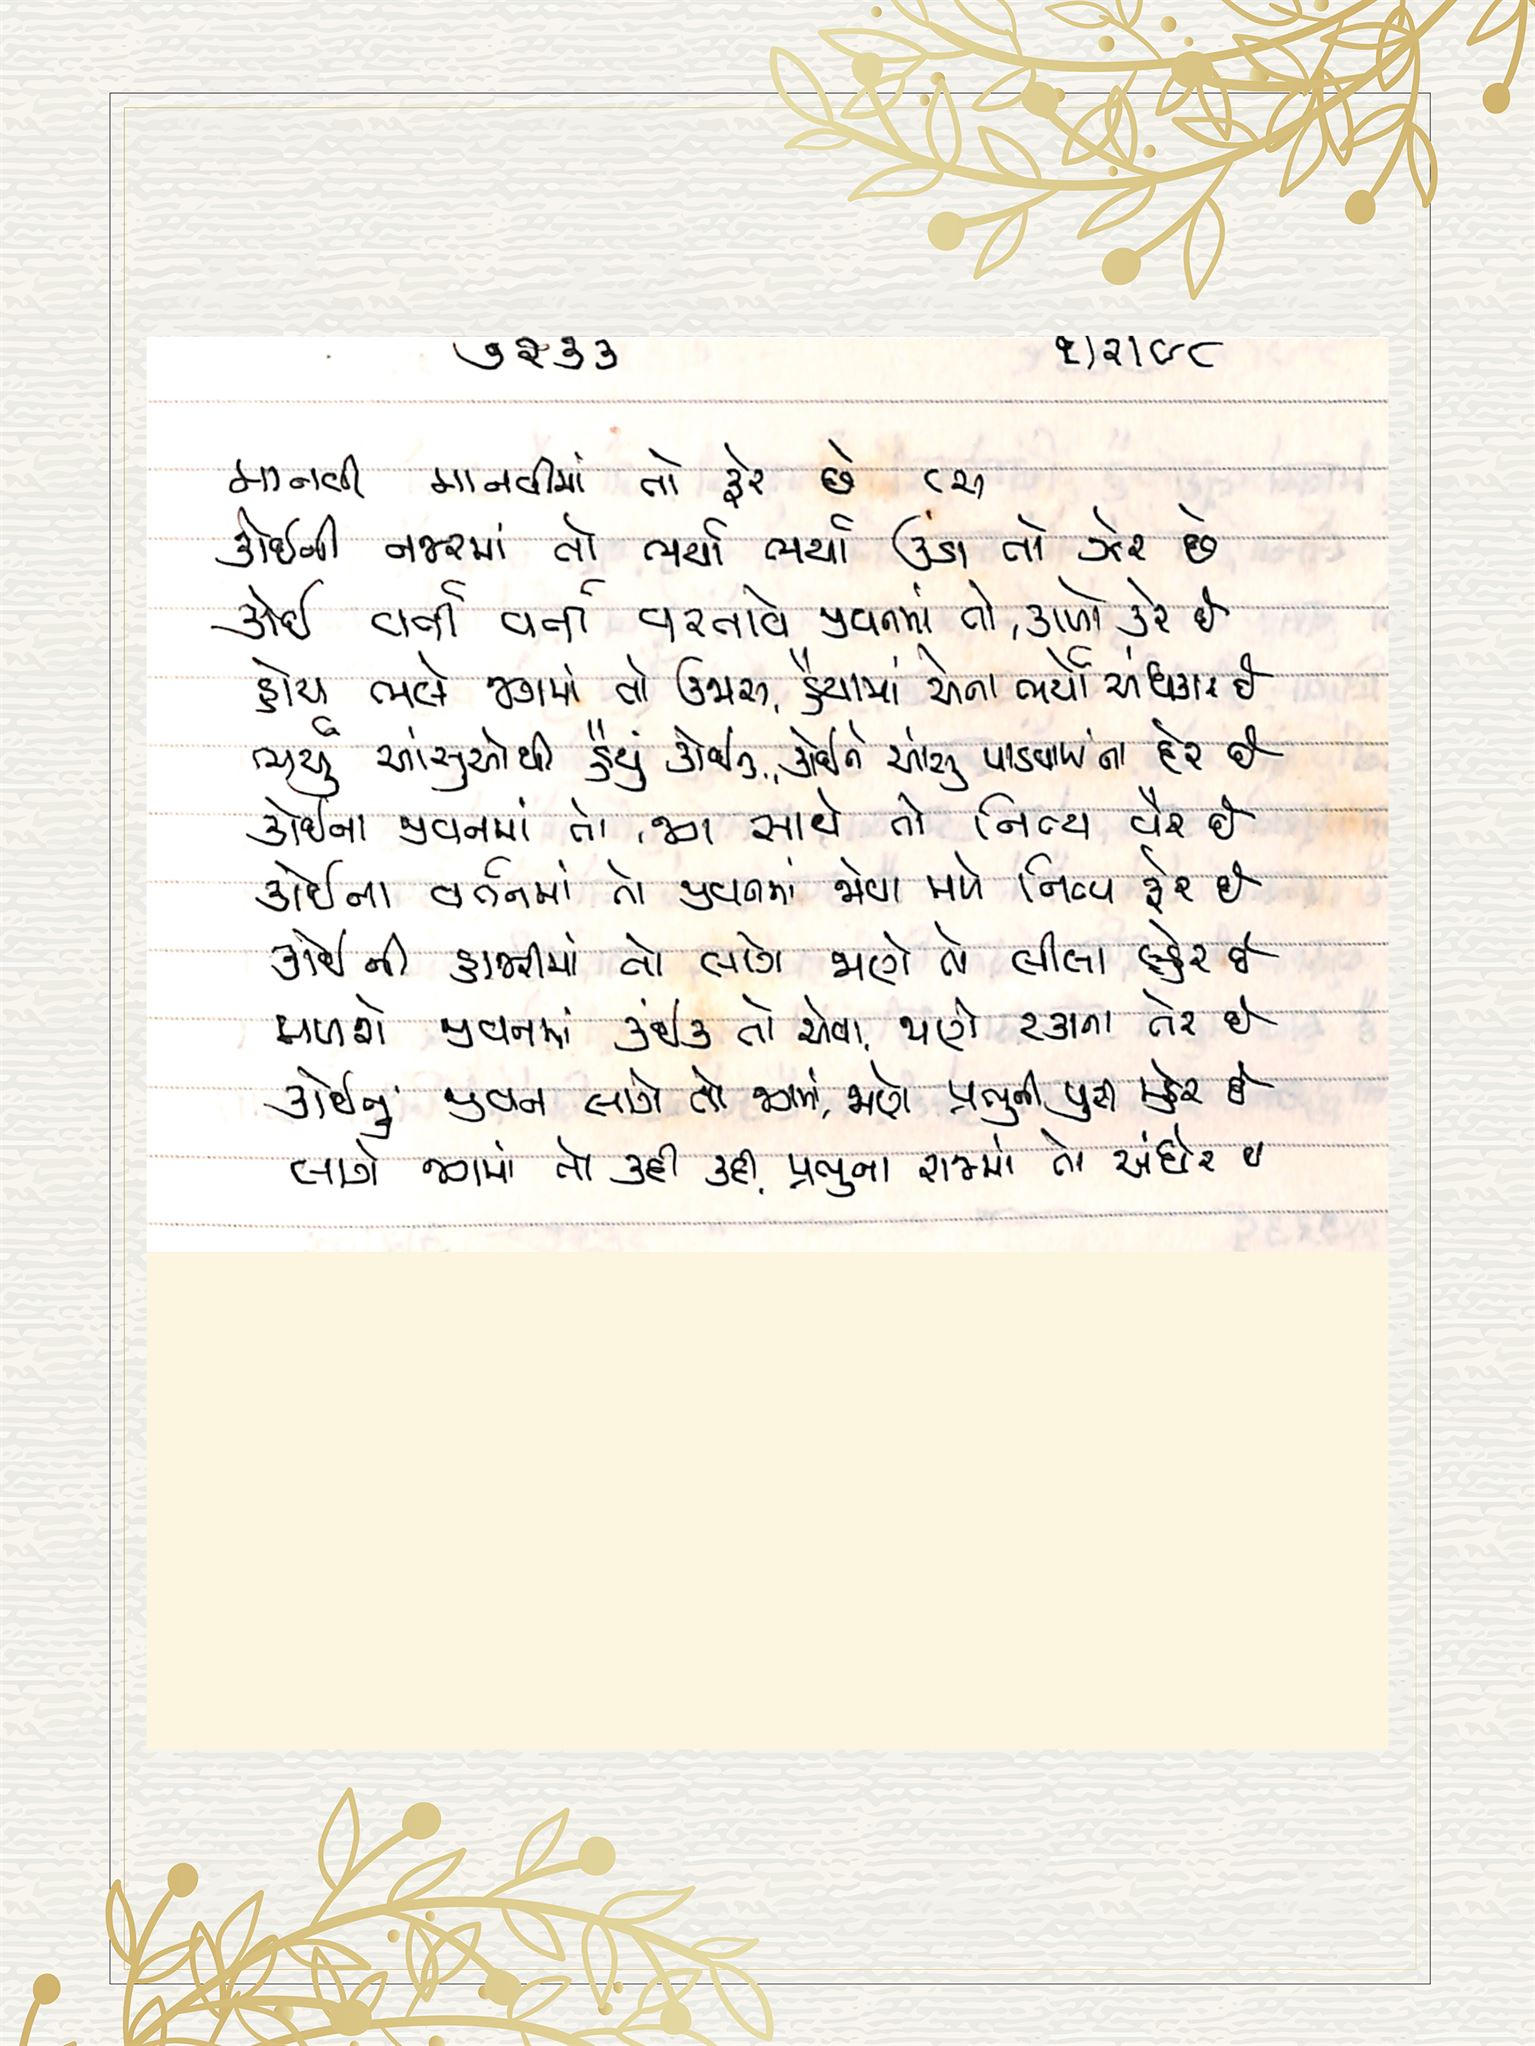 ૭૨૩૩ ૧/૨/૯૮
માનવી માનવીમાં તો ફેર છે
કોઈની નજરમાં તો ભર્યા ભર્યા ઉંડા તો ઝેર છે
કોઈ વર્તી વર્તી વરતાવે જીવનમાં તો, કાળો કેર છે
હોય ભલે જગમાં તો ઉજાસ, હૈયામાં એના ભર્યો અંધકાર છે
ભર્યું આંસુઓથી હૈયું કોઈનું, કોઈને આંસુ પાડવાના છે
કોઈના જીવનમાં તો, જગ સાથે તો નિત્ય વૈર છે
કોઈના વર્તનમાં તો જીવનમાં જોવા મળે નિત્ય ફેર છે
કોઈની હાજરીમાં તો લાગે જાણે તો લીલા લ્હેર છે
મળશે જીવનમાં કંઈક તો એવા, જાણે રકાના તેર છે
કોઈનું જીવન લાગે તો જગમાં, જાણે પ્રભુની પુરી મ્હેર છે
લાગે જગમાં તો કદી કદી, પ્રભુના રાજમાં તો અંધેર છે